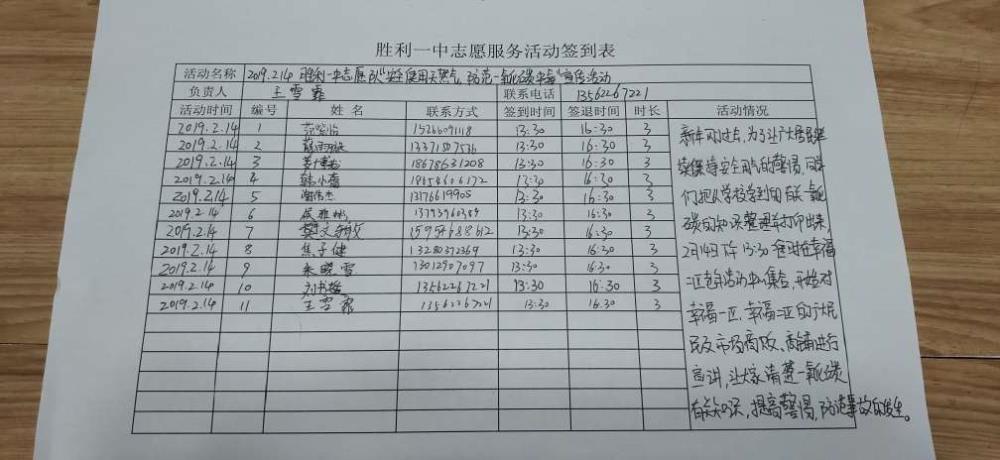 胜利一中志愿服务活动签到表
活动名称 2019.2.14 胜利一中志愿队"安全使用天然气,防范一氧化碳中毒"宣传活动
负责人 王雪霏 联系电话 13562267221
活动时间 编号 姓名 联系方式 签到时间 签退时间 时长 活动情况
2019.2.14 1 15266091118 13:30 16:30 3
2019.2.14 2 13371507536 13:30 16:30 3
2019.2.14 3 18678631208 13:30 16:30 3
2019.2.14 4 韩小蕾 13:30 16:30 3
2019.2.14 5 谢伟杰 13176619905 13:30 16:30 3
2019.2.14 6 13793960389 13:30 16:30 3
2019.2.14 7 樊文敏 15954688612 13:30 16:30 3
2019.2.14 8 焦子健 13280372369 13:30 16:30 3
2019.2.14 9 朱晓雪 13012907097 13:30 16:30 3
2019.2.14 10 刘书瑶 13562267221 13:30 16:30 3
2019.2.14 11 王雪霏 13562267221 13:30 16:30 3
新年刚过去,为了让广大居民继
续保持安全用气的警惕,同学
们把从学校学到的有关一氧化
碳的知识整理并打印出来,
2月14日下午13:30在幸福
二区活动中心集合,开始对
幸福一区、幸福二区的广大居
民及市场商贩、商铺进行
宣讲,让大家清楚一氧化碳
有关知识,提高警惕,防范事故的发生。